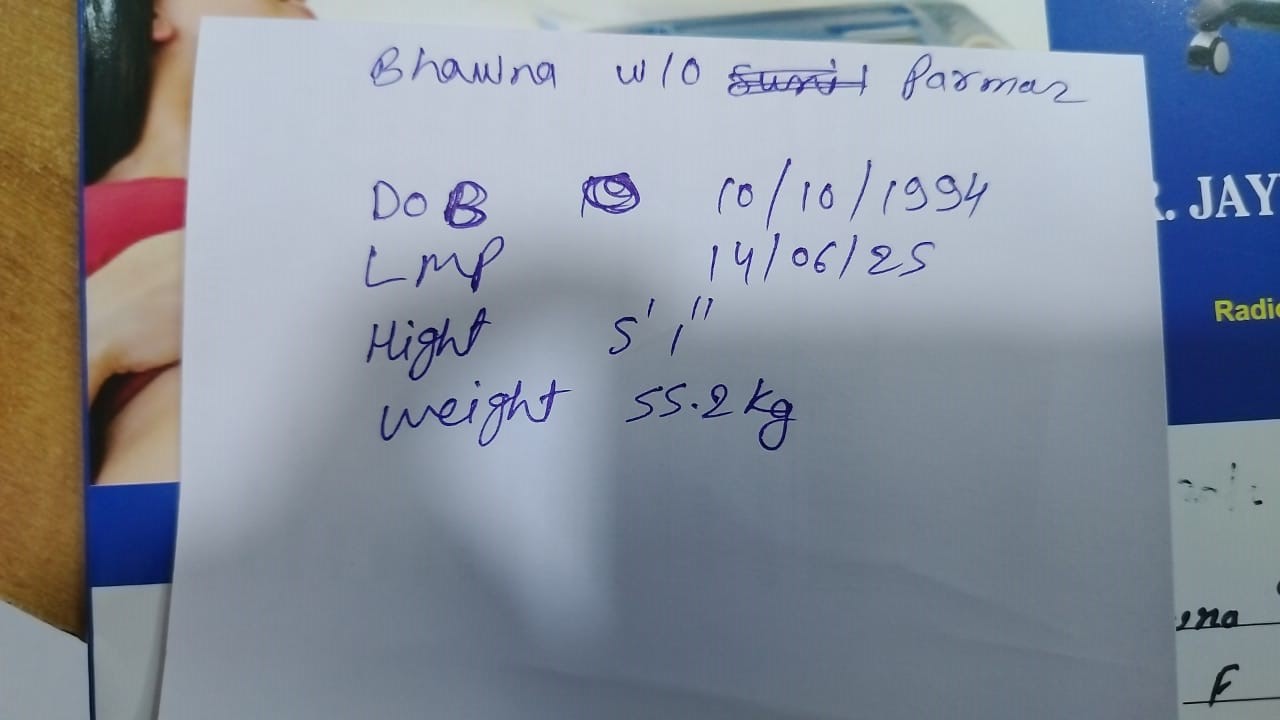 Bhawna w/o Sunil Parmar
DOB 10/10/1994
LMP 14/06/25
Hight 5' 1"
weight 55.2 kg
. JAY
Radio
F